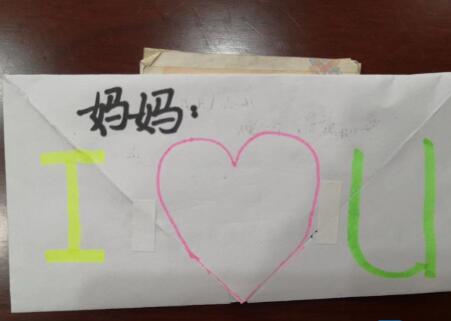 妈妈:
I U